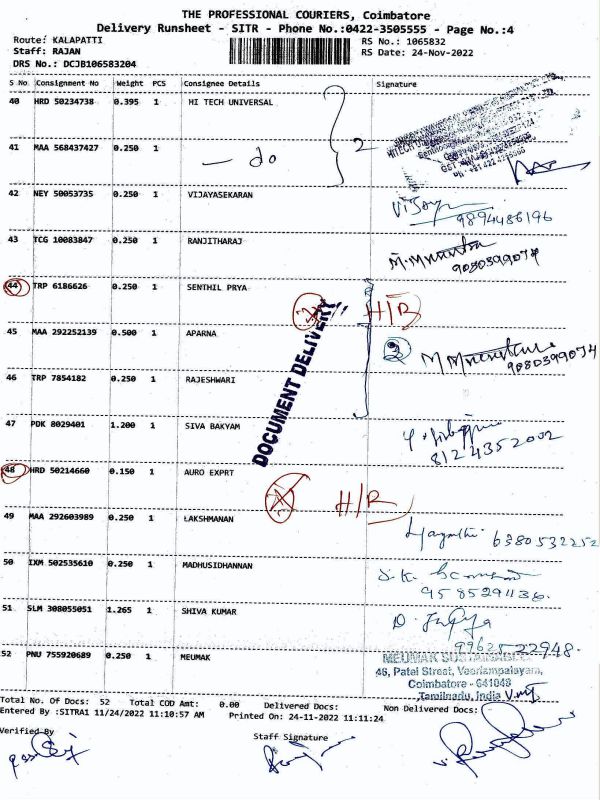 THE PROFESSIONAL COURIERS, Coimbatore
Delivery Runsheet - SITR - Phone No.:0422-3505555 - Page No.:4
Route: KALAPATTI
RS No.: 1065832
Staff: RAJAN
RS Date: 24-Nov-2022
DRS No.: DCJB106583204
S No. Consignment No Weight PCS Consignee Details Signature
40 HRD 50234738 0.395 1 HI TECH UNIVERSAL
41 MAA 568437427 0.250 1 - do 2
42 NEY 50053735 0.250 1 VIJAYASEKARAN
9894486196
43 TCG 10083847 0.250 1 RANJITHARAJ
44 TRP 6186626 0.250 1 SENTHIL PRYA H/B
DOCUMENT DELIVERY
45 MAA 292252139 0.500 1 APARNA
9080399074
46 TRP 7854182 0.250 1 RAJESHWARI
47 PDK 8029401 1.200 1 SIVA BAKYAM
8124352002
48 HRD 50214660 0.150 1 AURO EXPRT
H/B
49 MAA 292603989 0.250 1 LAKSHMANAN
6380532252
50 IXM 502535610 0.250 1 MADHUSIDHANNAN
9585291136.
51 SLM 308055051 1.265 1 SHIVA KUMAR
9962522948.
52 PNU 755920689 0.250 1 MEUMAK
46, Patel Street, Veeriampalayam,
Coimbatore - 641048
Tamilnadu, India
Total No. Of Docs: 52 Total COD Amt: 0.00 Delivered Docs: Non Delivered Docs:
Entered By :SITRA1 11/24/2022 11:10:57 AM Printed On: 24-11-2022 11:11:24
Verified By
Staff Signature